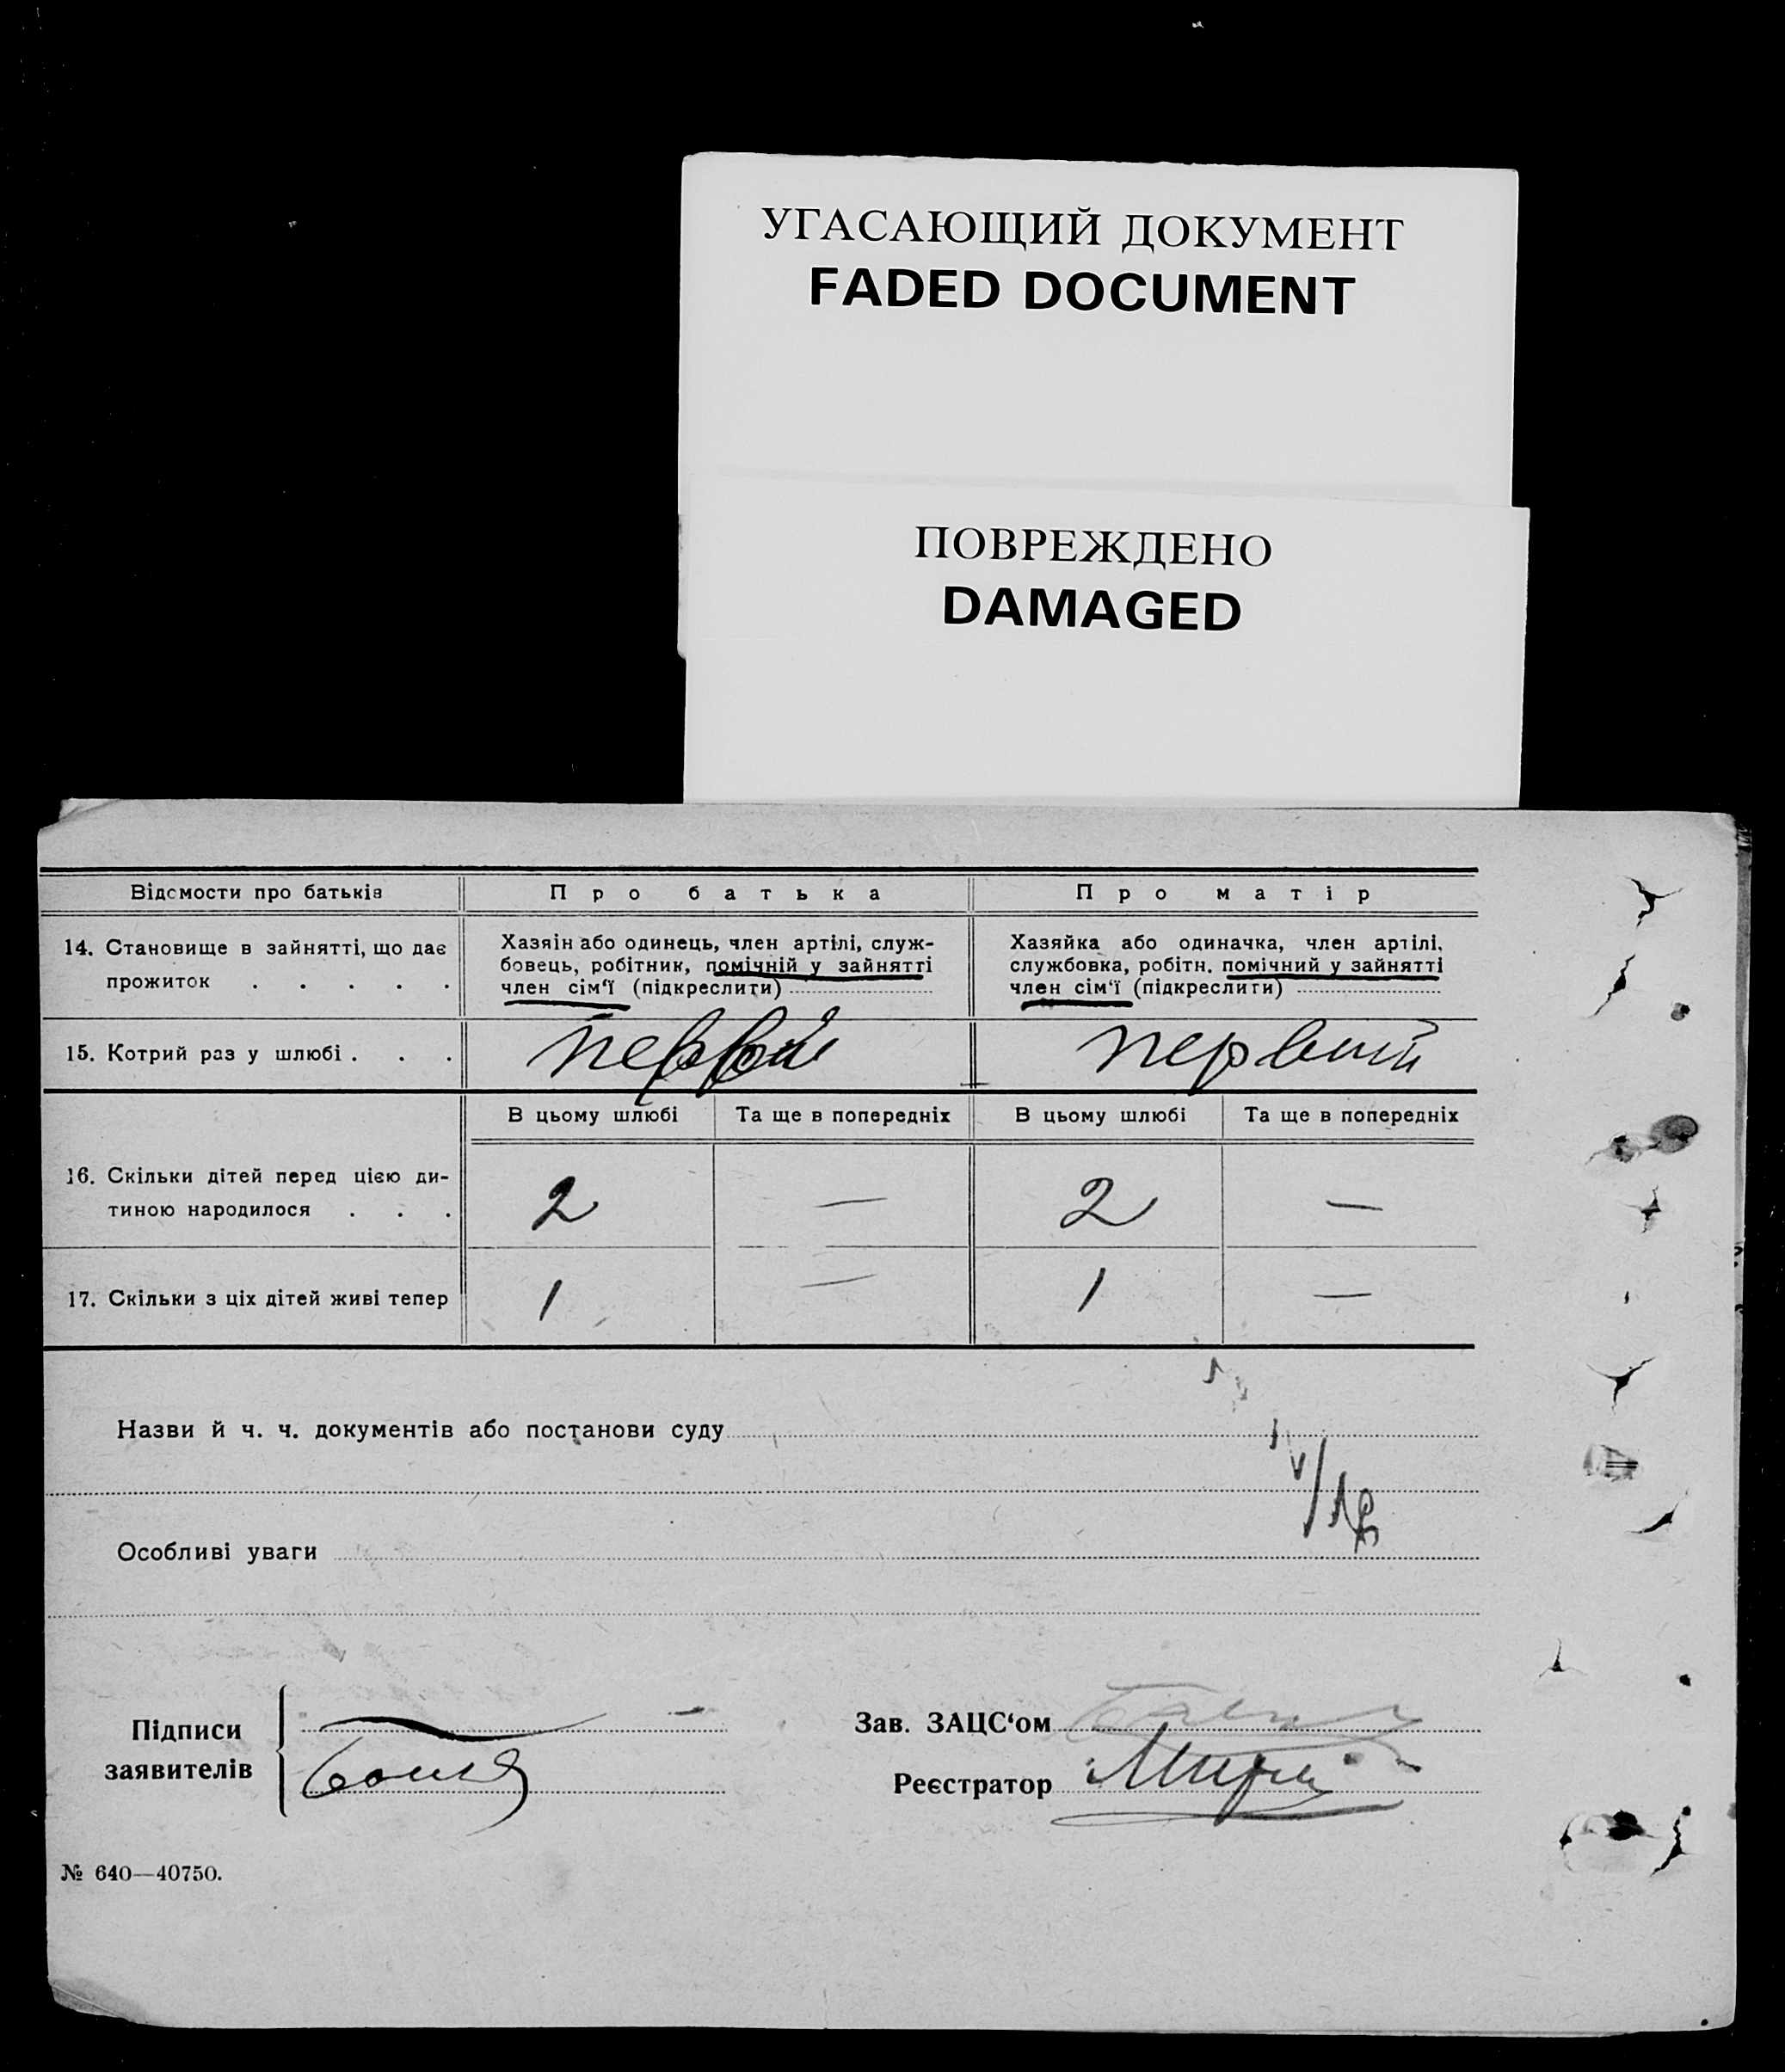 УГАСАЮЩИЙ ДОКУМЕНТ
FADED DOCUMENT
ПОВРЕЖДЕНО
DAMAGED
Відомости про батьків Про батька Про матір
14. Становище в зайнятті, що дає
прожиток . . . . .
Хазяін або одинець, член артілі, служ-
бовець, робітник, помічній у зайнятті
член сім'ї (підкреслити)
Хазяйка або одиначка, член артілі,
службовка, робітн. помічний у зайнятті
член сім'ї (підкреслити)
15. Котрий раз у шлюбі . . . первый первий
В цьому шлюбі Та ще в попередніх В цьому шлюбі Та ще в попередніх
16. Скільки дітей перед цією ди-
тиною народилося . . . 2 — 2 —
17. Скільки з ціх дітей живі тепер 1 — 1 —
Назви й ч. ч. документів або постанови суду
Особливі уваги
Підписи
заявителів
Зав. ЗАЦС'ом
Реєстратор
№ 640—40750.